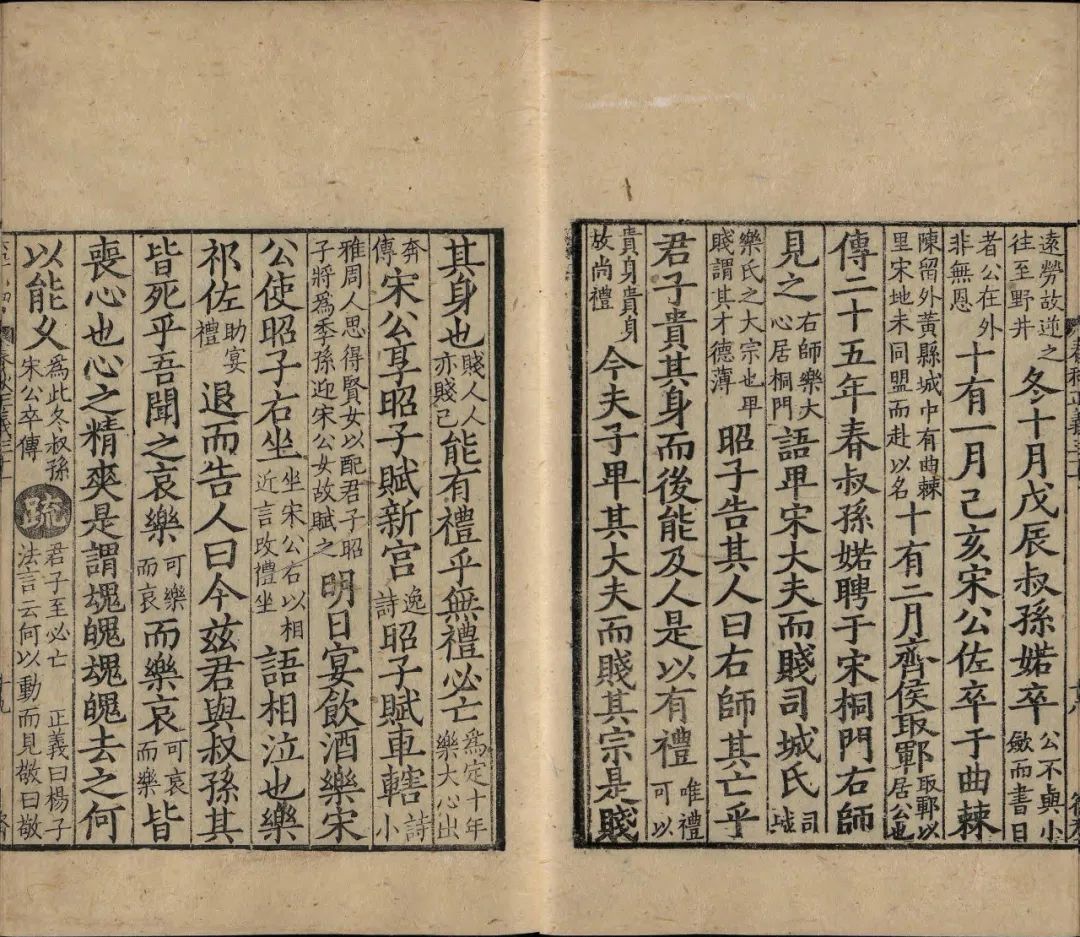 遠勞故逆之往至野井冬十月戊辰叔孫婼卒公不與小斂而書日
者公在外非無恩十有一月己亥宋公佐卒于曲棘
陳留外黃縣城中有曲棘里宋地未同盟而赴以名十有二月齊侯取鄆取鄆以居公也
傳二十五年春叔孫婼聘于宋桐門右師
見之右師樂大心居桐門語卑宋大夫而賤司城氏司城
樂氏之大宗也卑賤謂其才德薄昭子告其人曰右師其亡乎
君子貴其身而後能及人是以有禮唯禮可以
貴身貴身故尚禮今夫子卑其大夫而賤其宗是賤
其身也賤人人亦賤己能有禮乎無禮必亡爲定十年樂大心出
奔傳宋公享昭子賦新宮逸詩昭子賦車轄詩小
雅周人思得賢女以配君子昭子將爲季孫迎宋公女故賦之明日宴飲酒樂宋
公使昭子右坐坐宋公右以相近言改禮坐語相泣也樂
祁佐助宴禮退而告人曰今茲君與叔孫其
皆死乎吾聞之哀樂可樂而哀而樂哀可哀而樂皆
喪心也心之精爽是謂魂魄魂魄去之何
以能久爲此冬叔孫宋公卒傳疏君子至必亡正義曰楊子法言云何以動而見敬曰敬